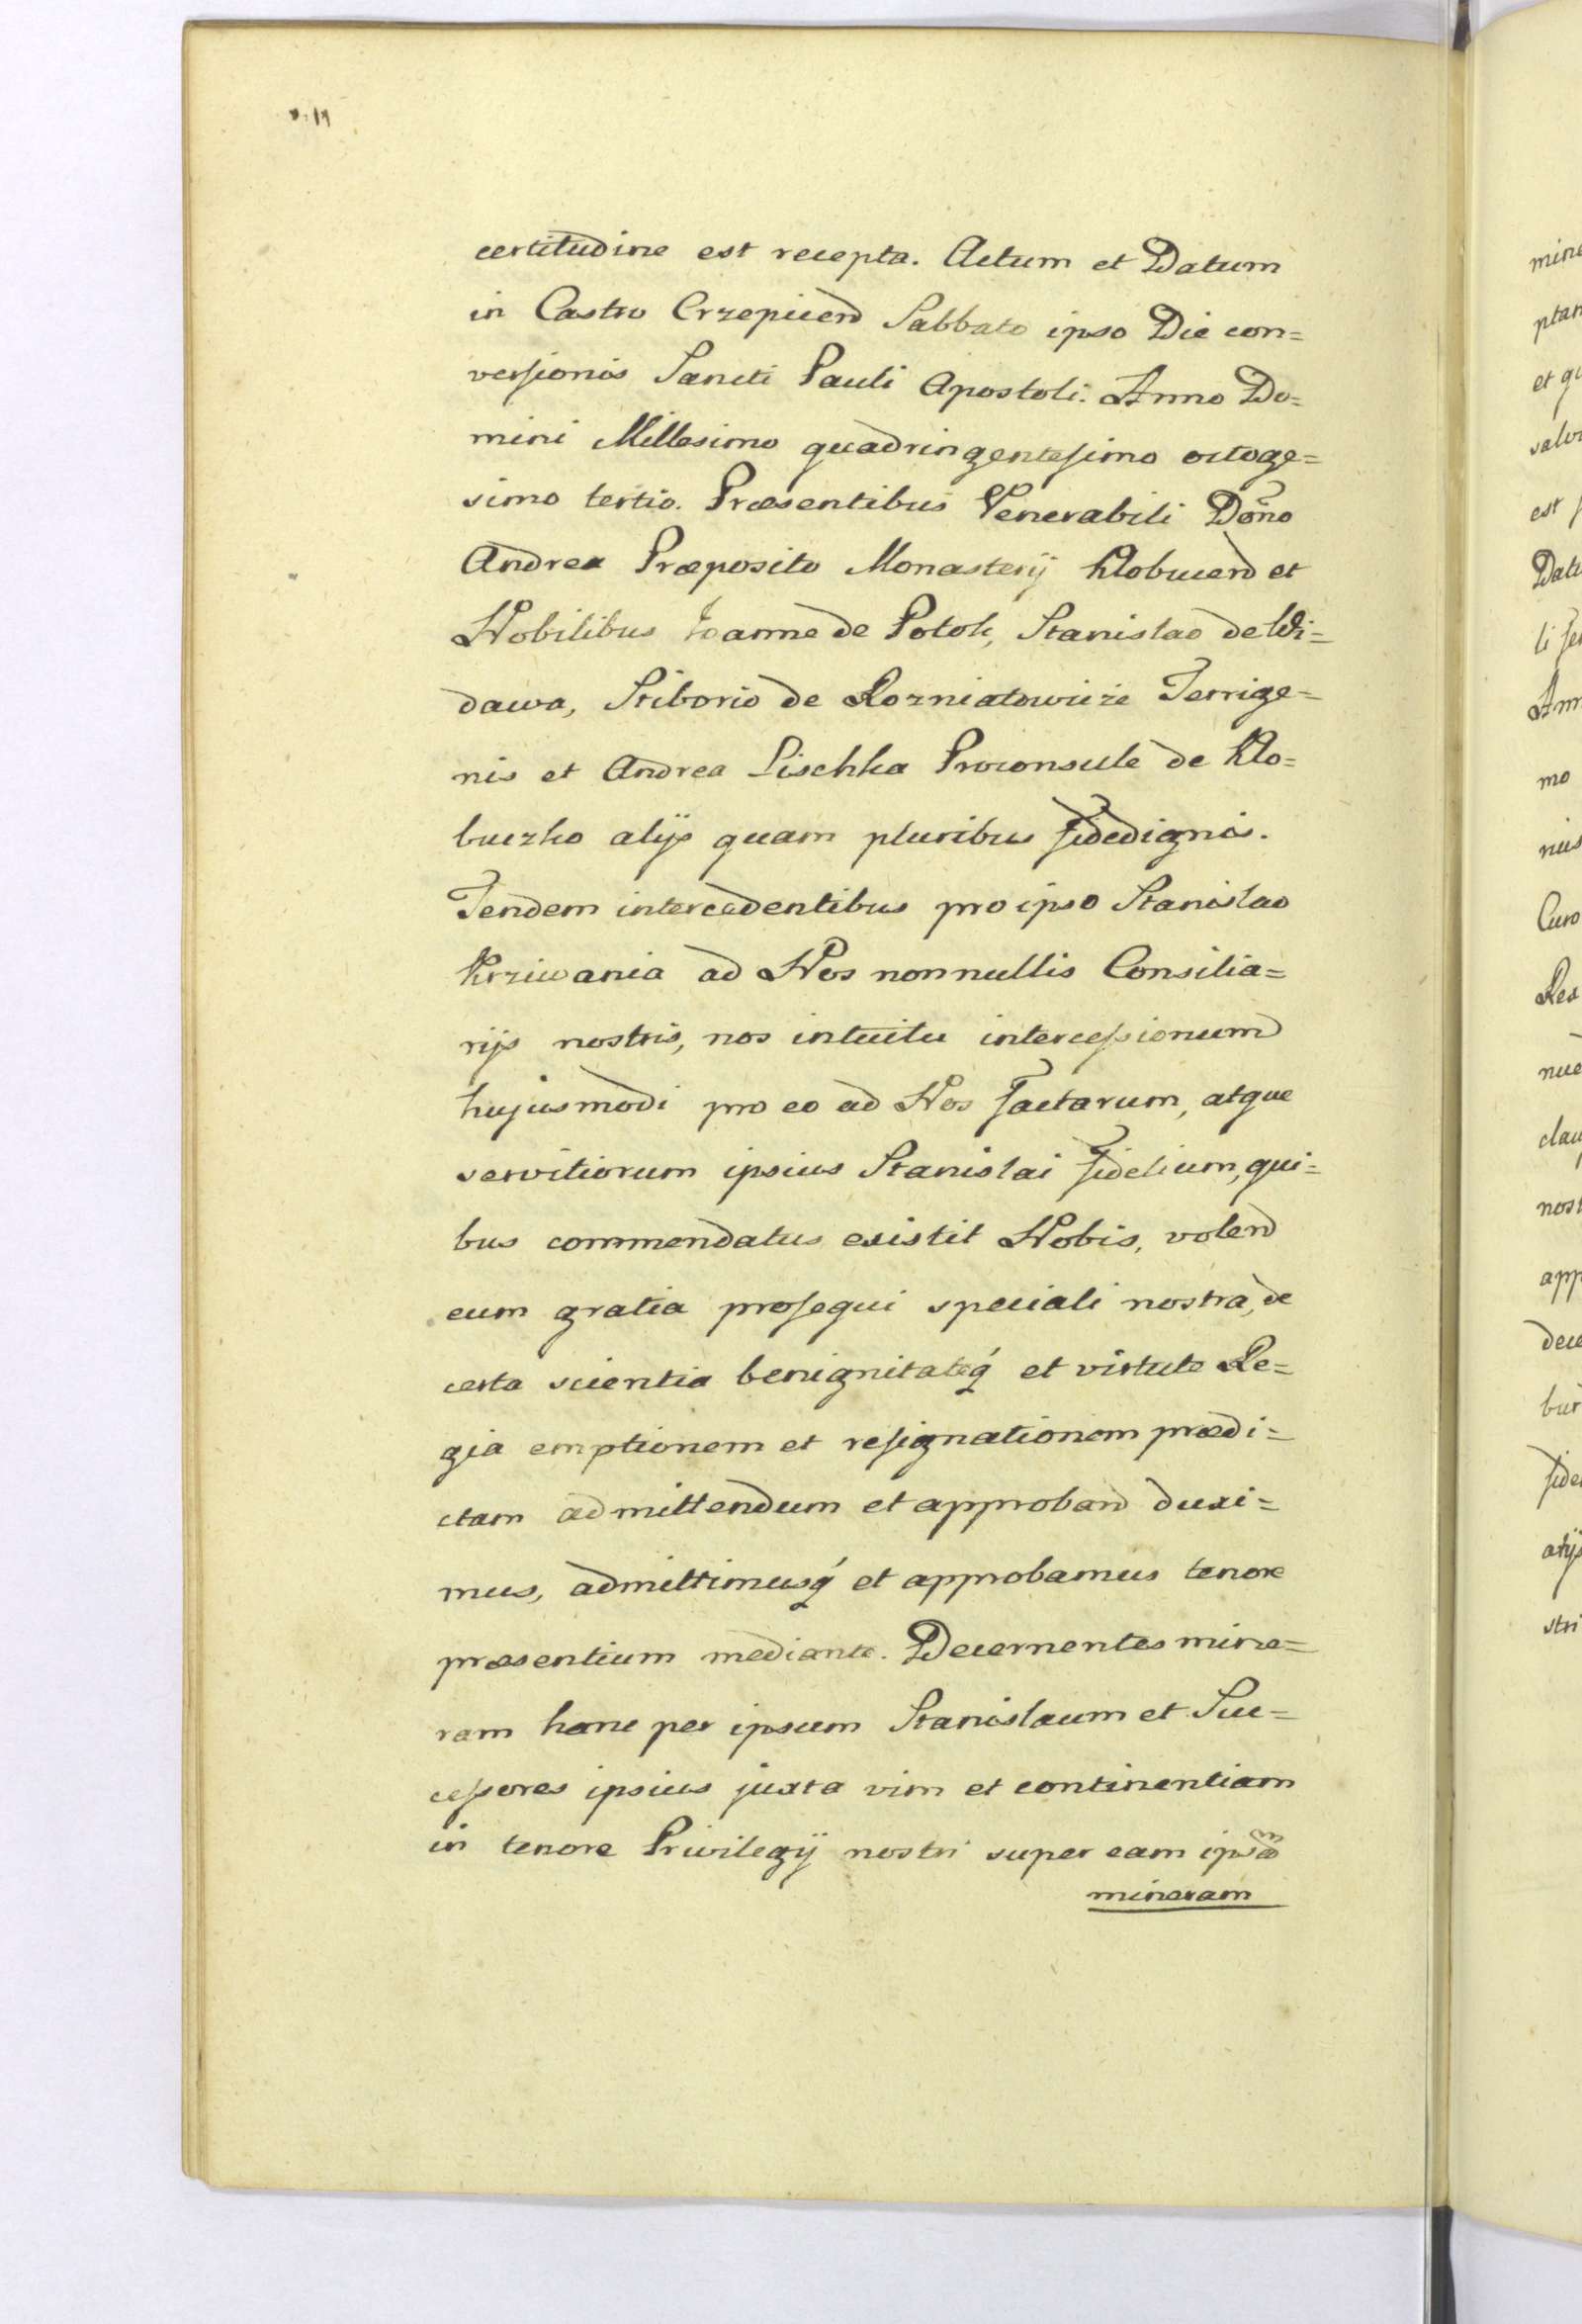 certitudine est recepta. Actum et Datum
in Castro Crzepicen̄ Sabbato ipso Die con=
versionis Sancti Pauli Apostoli. Anno Do=
mini Millesimo quadringentesimo octoge=
simo tertio. Præsentibus Venerabili Dōno
Andrea Præposito Monasterij Klobucen̄ et
Nobilibus Joanne de Potok, Stanislao de Wi=
dawa, Stiborio de Rozniatowicze Terrige=
nis et Andrea Lischka Proconsule de Klo=
buczko alijs quam pluribus fidedignis.
Tendem intercedentibus pro ipso Stanislao
Krziwania ad Nos nonnullis Consilia=
rijs nostris, nos intuitu intercessionum
hujusmodi pro eo ad Nos factarum, atque
servitiorum ipsius Stanislai fidelium, qui=
bus commendatus existit Nobis, volen̄
eum gratia prosequi speciali nostra, de
certa scientia benignitateq́ et virtute Re=
gia emptionem et resignationem prædi=
ctam admittendum et approban̄ duxi=
mus, admittimusq́ et approbamus tenore
præsentium mediante. Decernentes mine=
ram hanc per ipsum Stanislaum et Suc=
cessores ipsius juxta vim et continentiam
in tenore Privilegij nostri super eam ipsam
mineram
mine
ptan
et qu
salv
est
Datu
li
Ann
mo
nius
Curo
Rex
nue
clau
nost
app
dece
bur
fide
alijs
stri